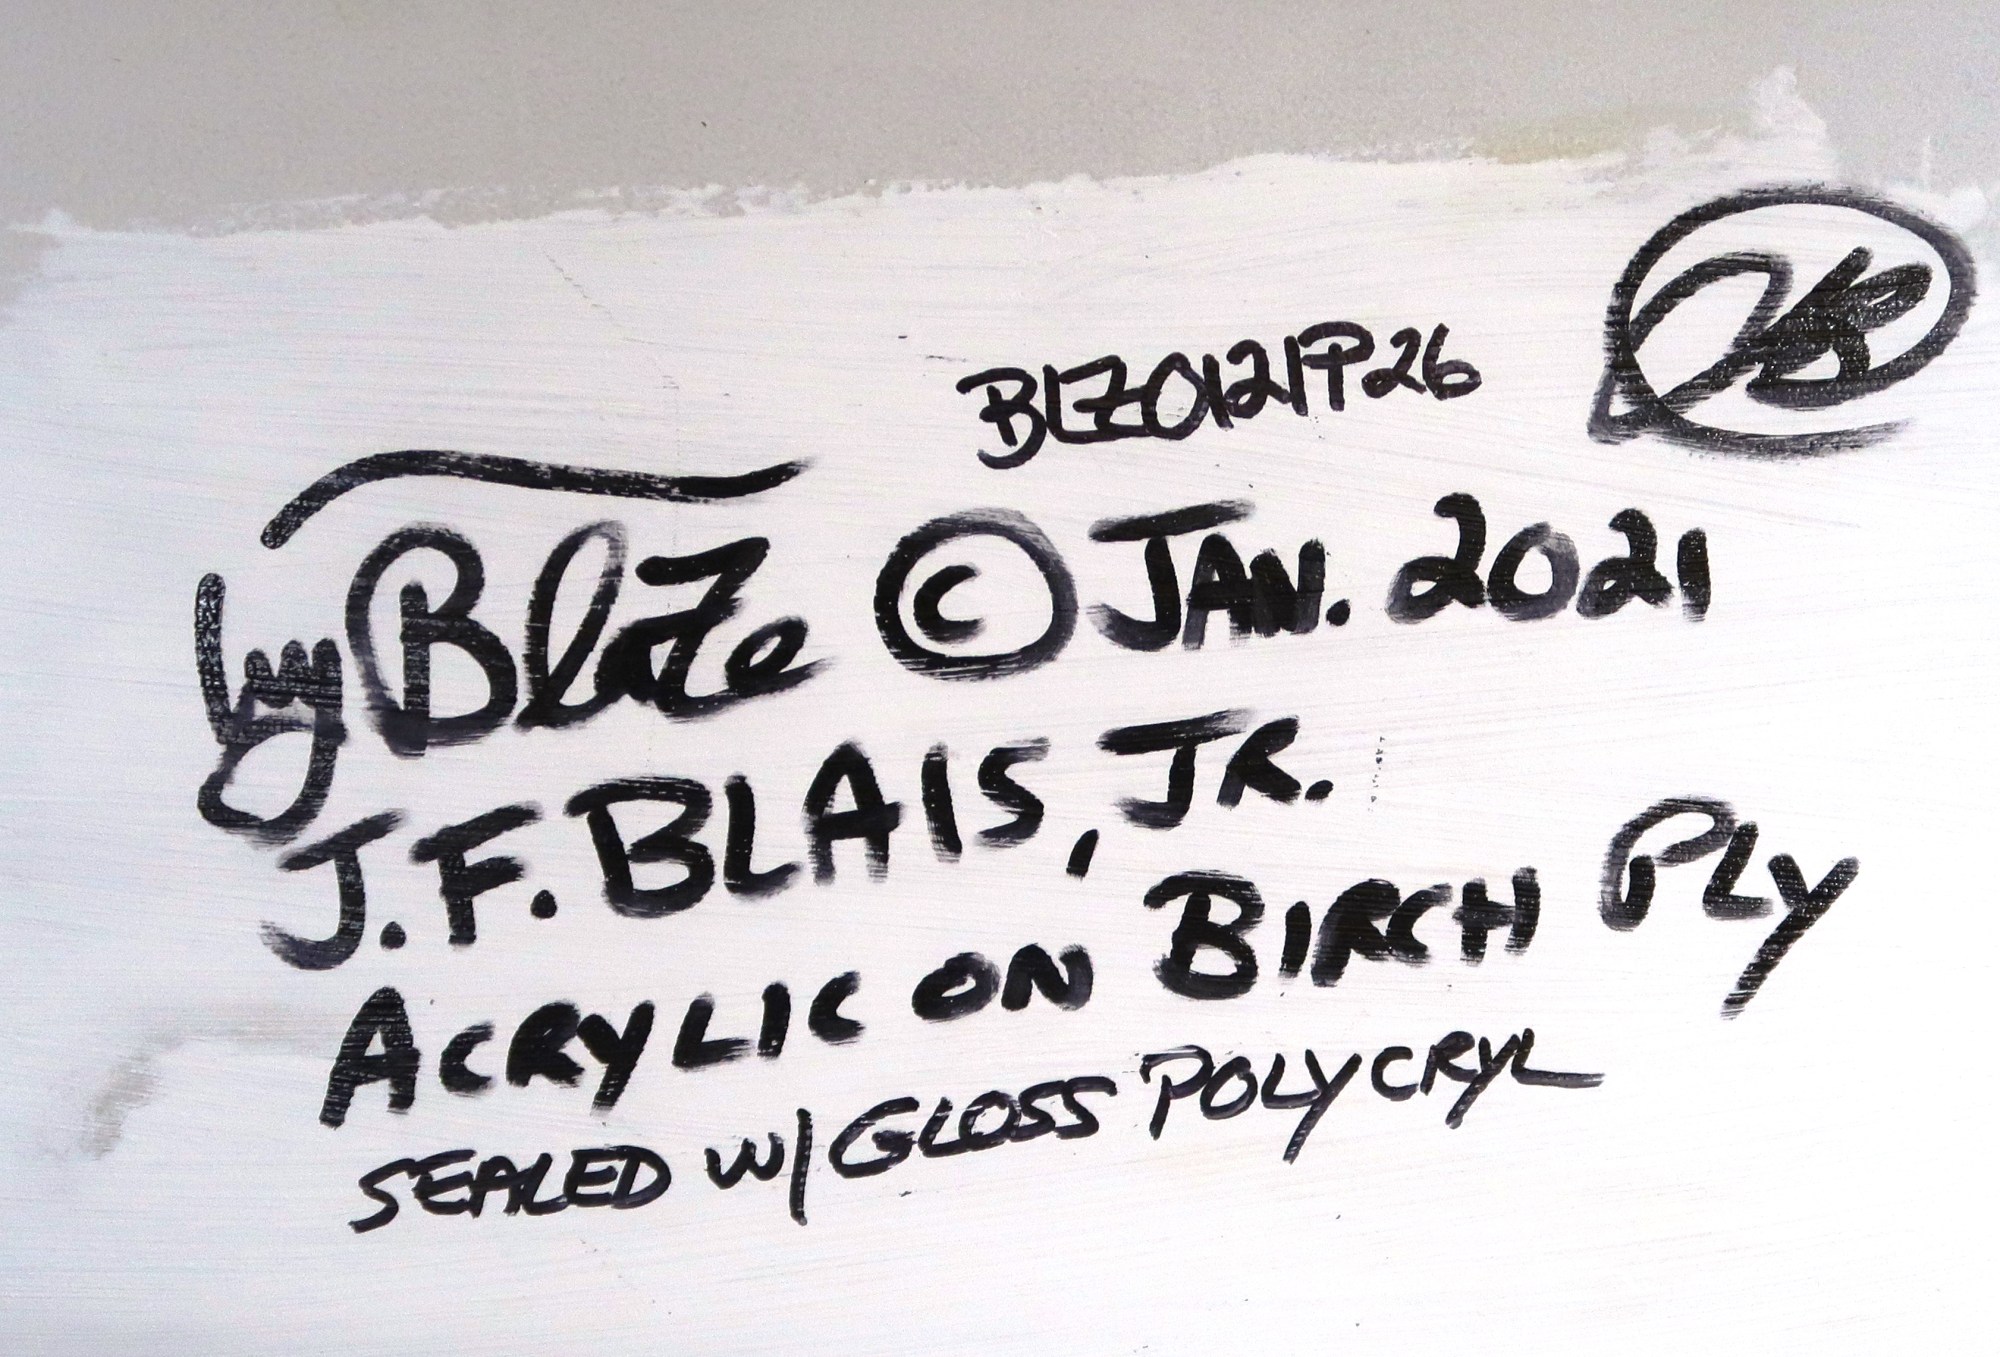 BLZ0121P26
by Blaze © JAN. 2021
J.F. BLAIS, JR.
ACRYLIC ON BIRCH PLY
SEALED W/ GLOSS POLYCRYL